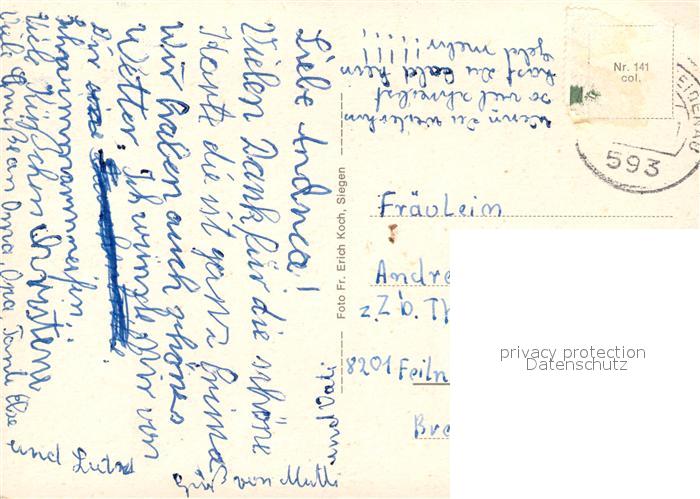 Liebe Andrea!
Vielen Dank für die schöne
Karte die ist ganz prima
Wir haben auch schönes
Wetter. Ich wünsche Dir von
Dir eine
Viele Küßchen Christine
Viele Grüße an Oma, Opa, Tante Else
und
Gruß von Mutti
und Vati
Wenn du weiterhin
so viel schreibst
hast du bald kein
Geld mehr!!!!!!!
Foto Fr. Erich Koch, Siegen
Nr. 141
col.
593
Fräulein
Andre
z.Zt. b. Th
8201 Feiln
Bre
privacy protection
Datenschutz